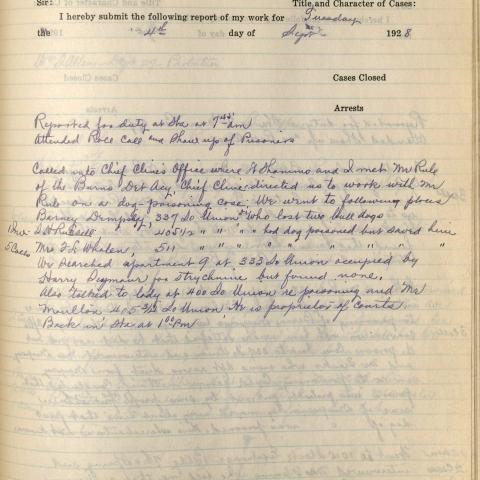 Sir:
Title and Character of Cases:
I hereby submit the following report of my work for Tuesday
the 4th day of Sept 1928
Cases Closed
Arrests
Reported for duty at Sta at 7 45 am
Attended Roll Call and Show up of Prisoners
Called into Chief Cline's Office where H and I met Mr Rule
of the Burns Det Acy Chief Cline directed us to work with Mr
Rule on a dog poisoning case, We went to following places
Barney Dempsey, 337 So Union who lost two bull dogs
405 1/2 " " " had dog poisoned but saved him
5 Cases Mrs F. L. Whalen, 511 " " " " " " "
We searched apartment 9 at 333 So Union occupied by
Harry for strychnine but found none.
Also talked to lady at 400 So Union re poisoning and Mr
Moulton 405 1/2 So Union, He is proprietor of Courts
Back in Sta at 1 00 PM